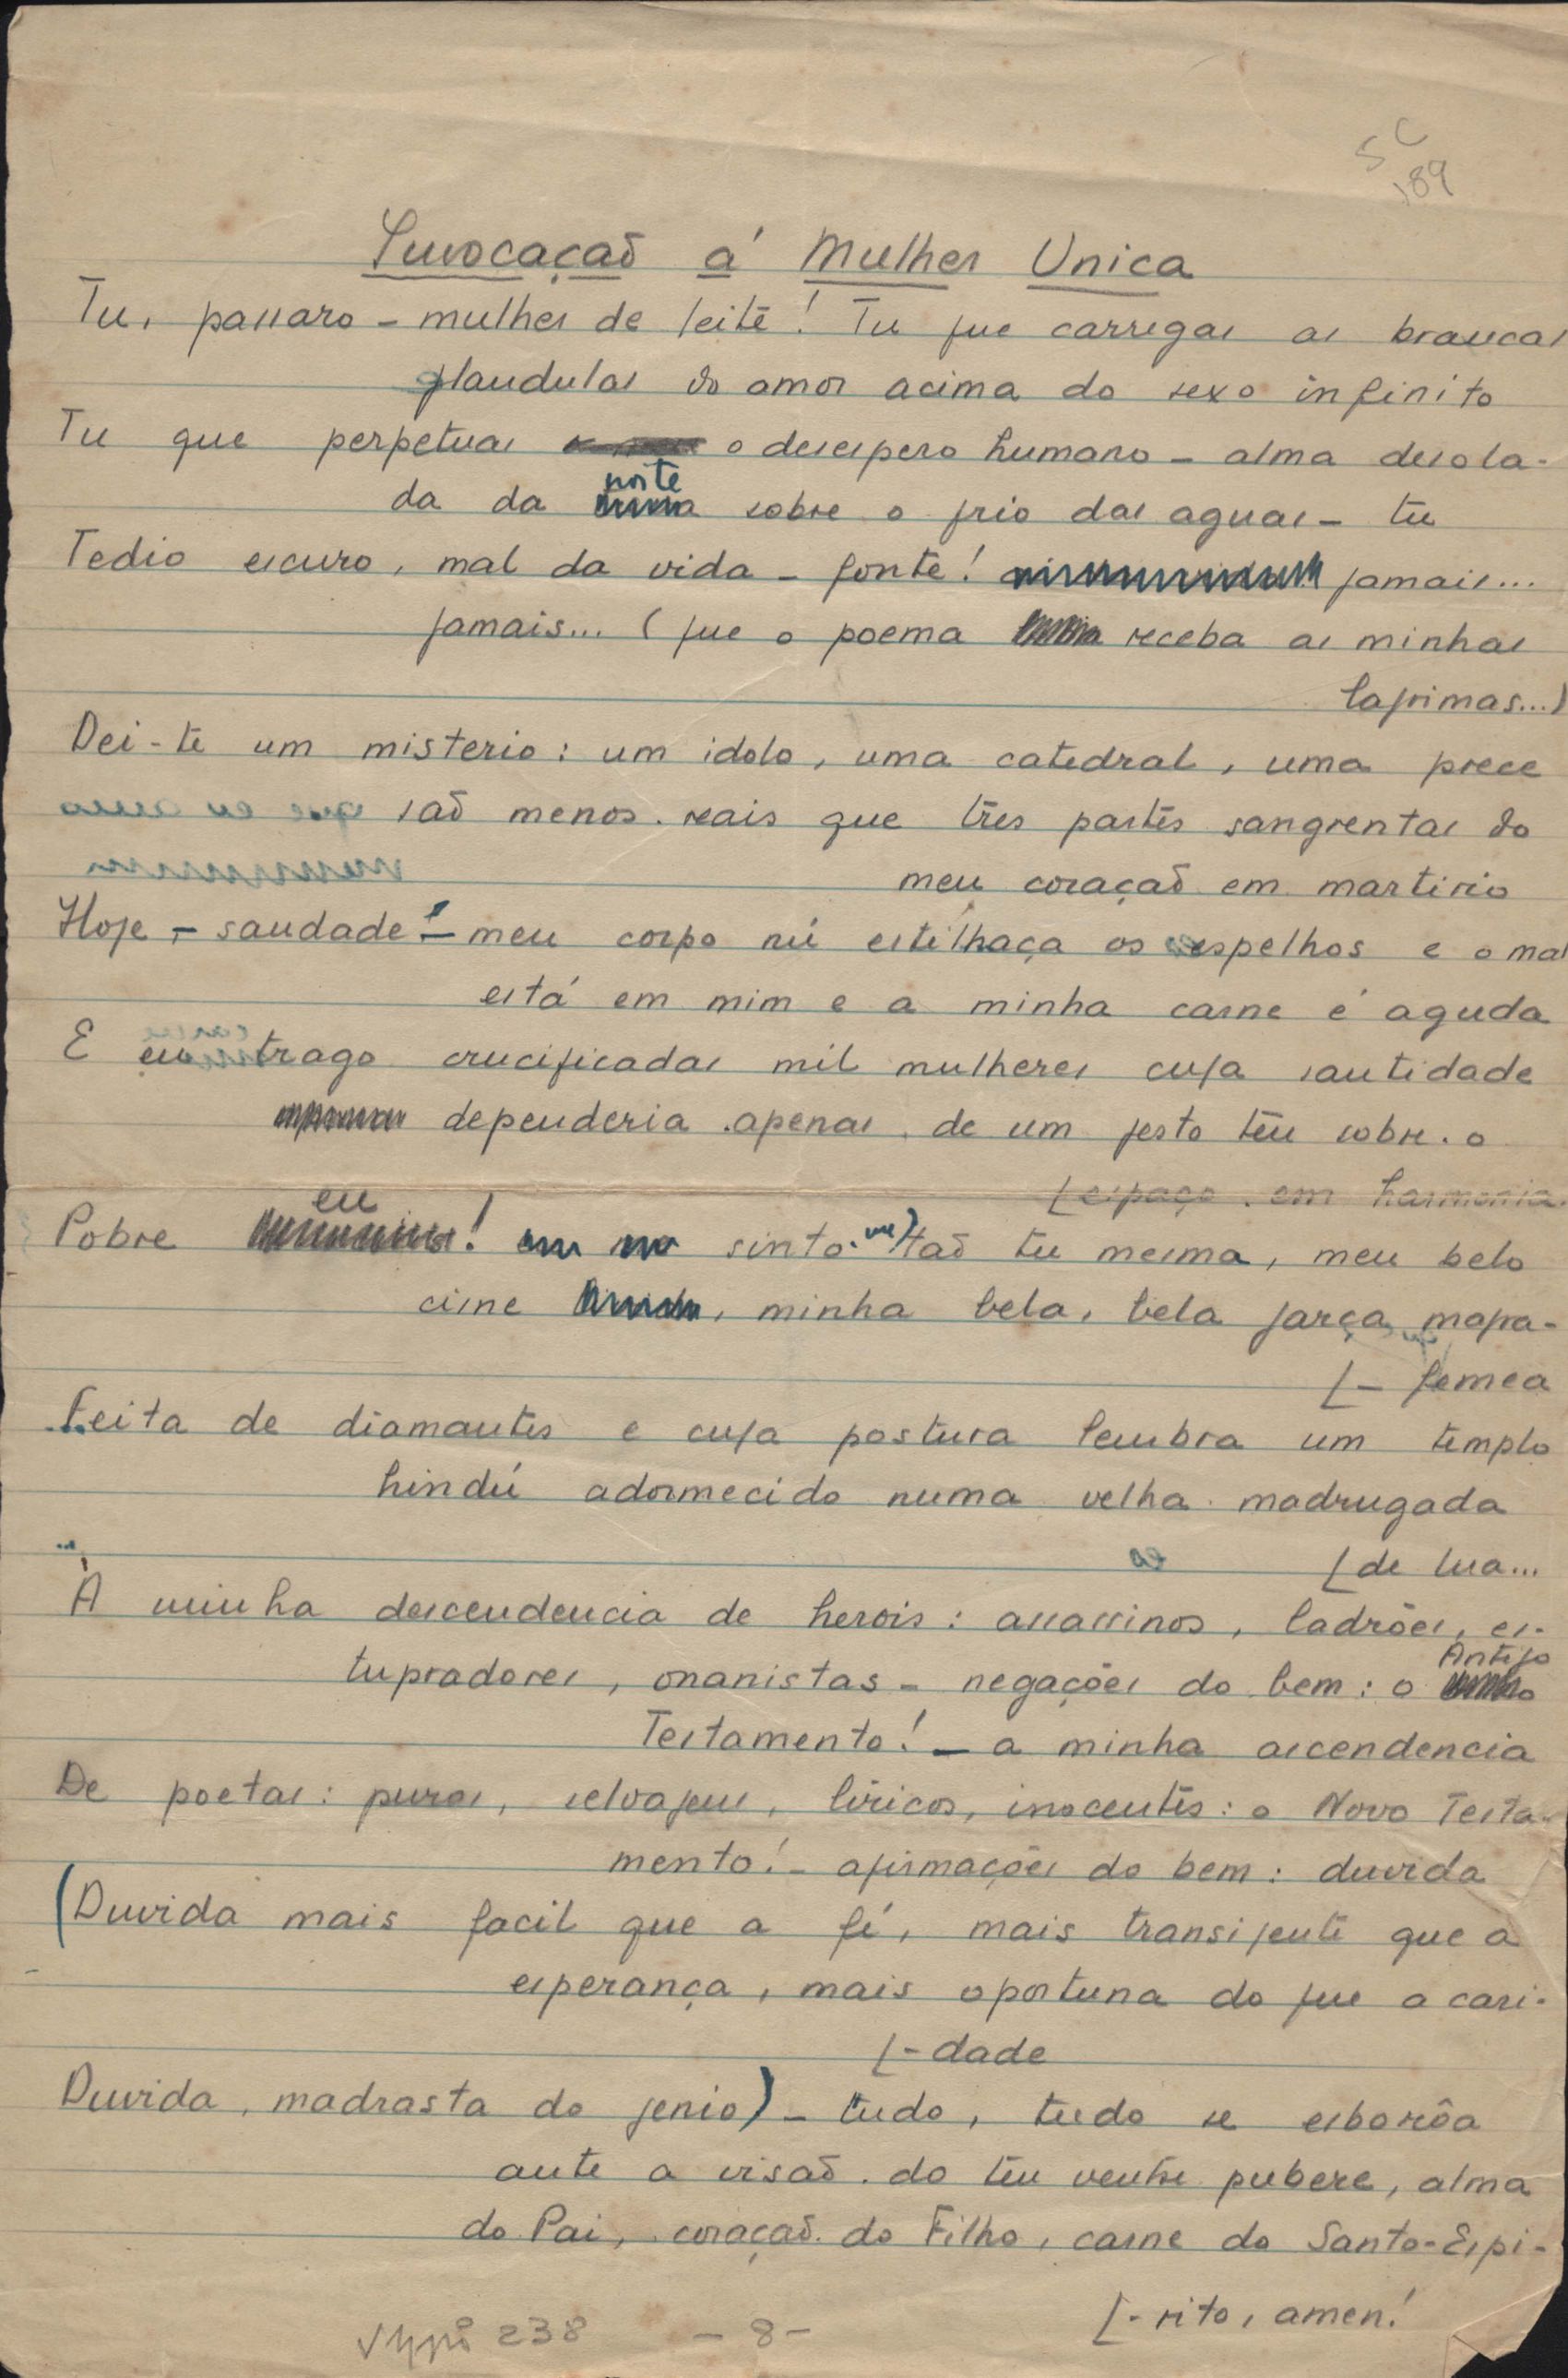 SC
189
Invocação á Mulher Unica
Tu, passaro - mulher de leite! Tu que carregas as brancas
glandulas do amor acima do sexo infinito
Tu que perpetuas o desespero humano - alma desola-
da da noite sobre o frio das aguas - tu
Tedio escuro, mal da vida - fonte! jamais...
jamais... (que o poema receba as minhas
lagrimas...)
Dei-te um misterio: um idolo, uma catedral, uma prece
são menos reais que três partes sangrentas do
meu coração em martirio
Hoje - saudade! - meu corpo nú estilhaça os espelhos e o mal
está em mim e a minha carne é aguda
E eu trago crucificadas mil mulheres cuja santidade
dependeria apenas de um gesto teu sobre o
[espaço em harmonia.
Pobre eu! sinto-me tão tu mesma, meu belo
cisne, minha bela, bela garça
[- femea
Feita de diamantes e cuja postura lembra um templo
hindú adormecido numa velha madrugada
[de lua...
A minha descendencia de herois: assassinos, ladrões, es-
tupradores, onanistas - negações do bem: o Antigo
Testamento! - a minha ascendencia
De poetas: puros, selvagens, liricos, inocentes: o Novo Testa-
mento! - afirmações do bem: duvida
(Duvida mais facil que a fé, mais transigente que a
esperança, mais oportuna do que a cari-
[-dade
Duvida, madrasta do genio) - tudo, tudo se esborôa
ante a visão do teu ventre pubere, alma
do Pai, coração do Filho, carne do Santo-Espi-
[-rito, amen!
238 - 8 -